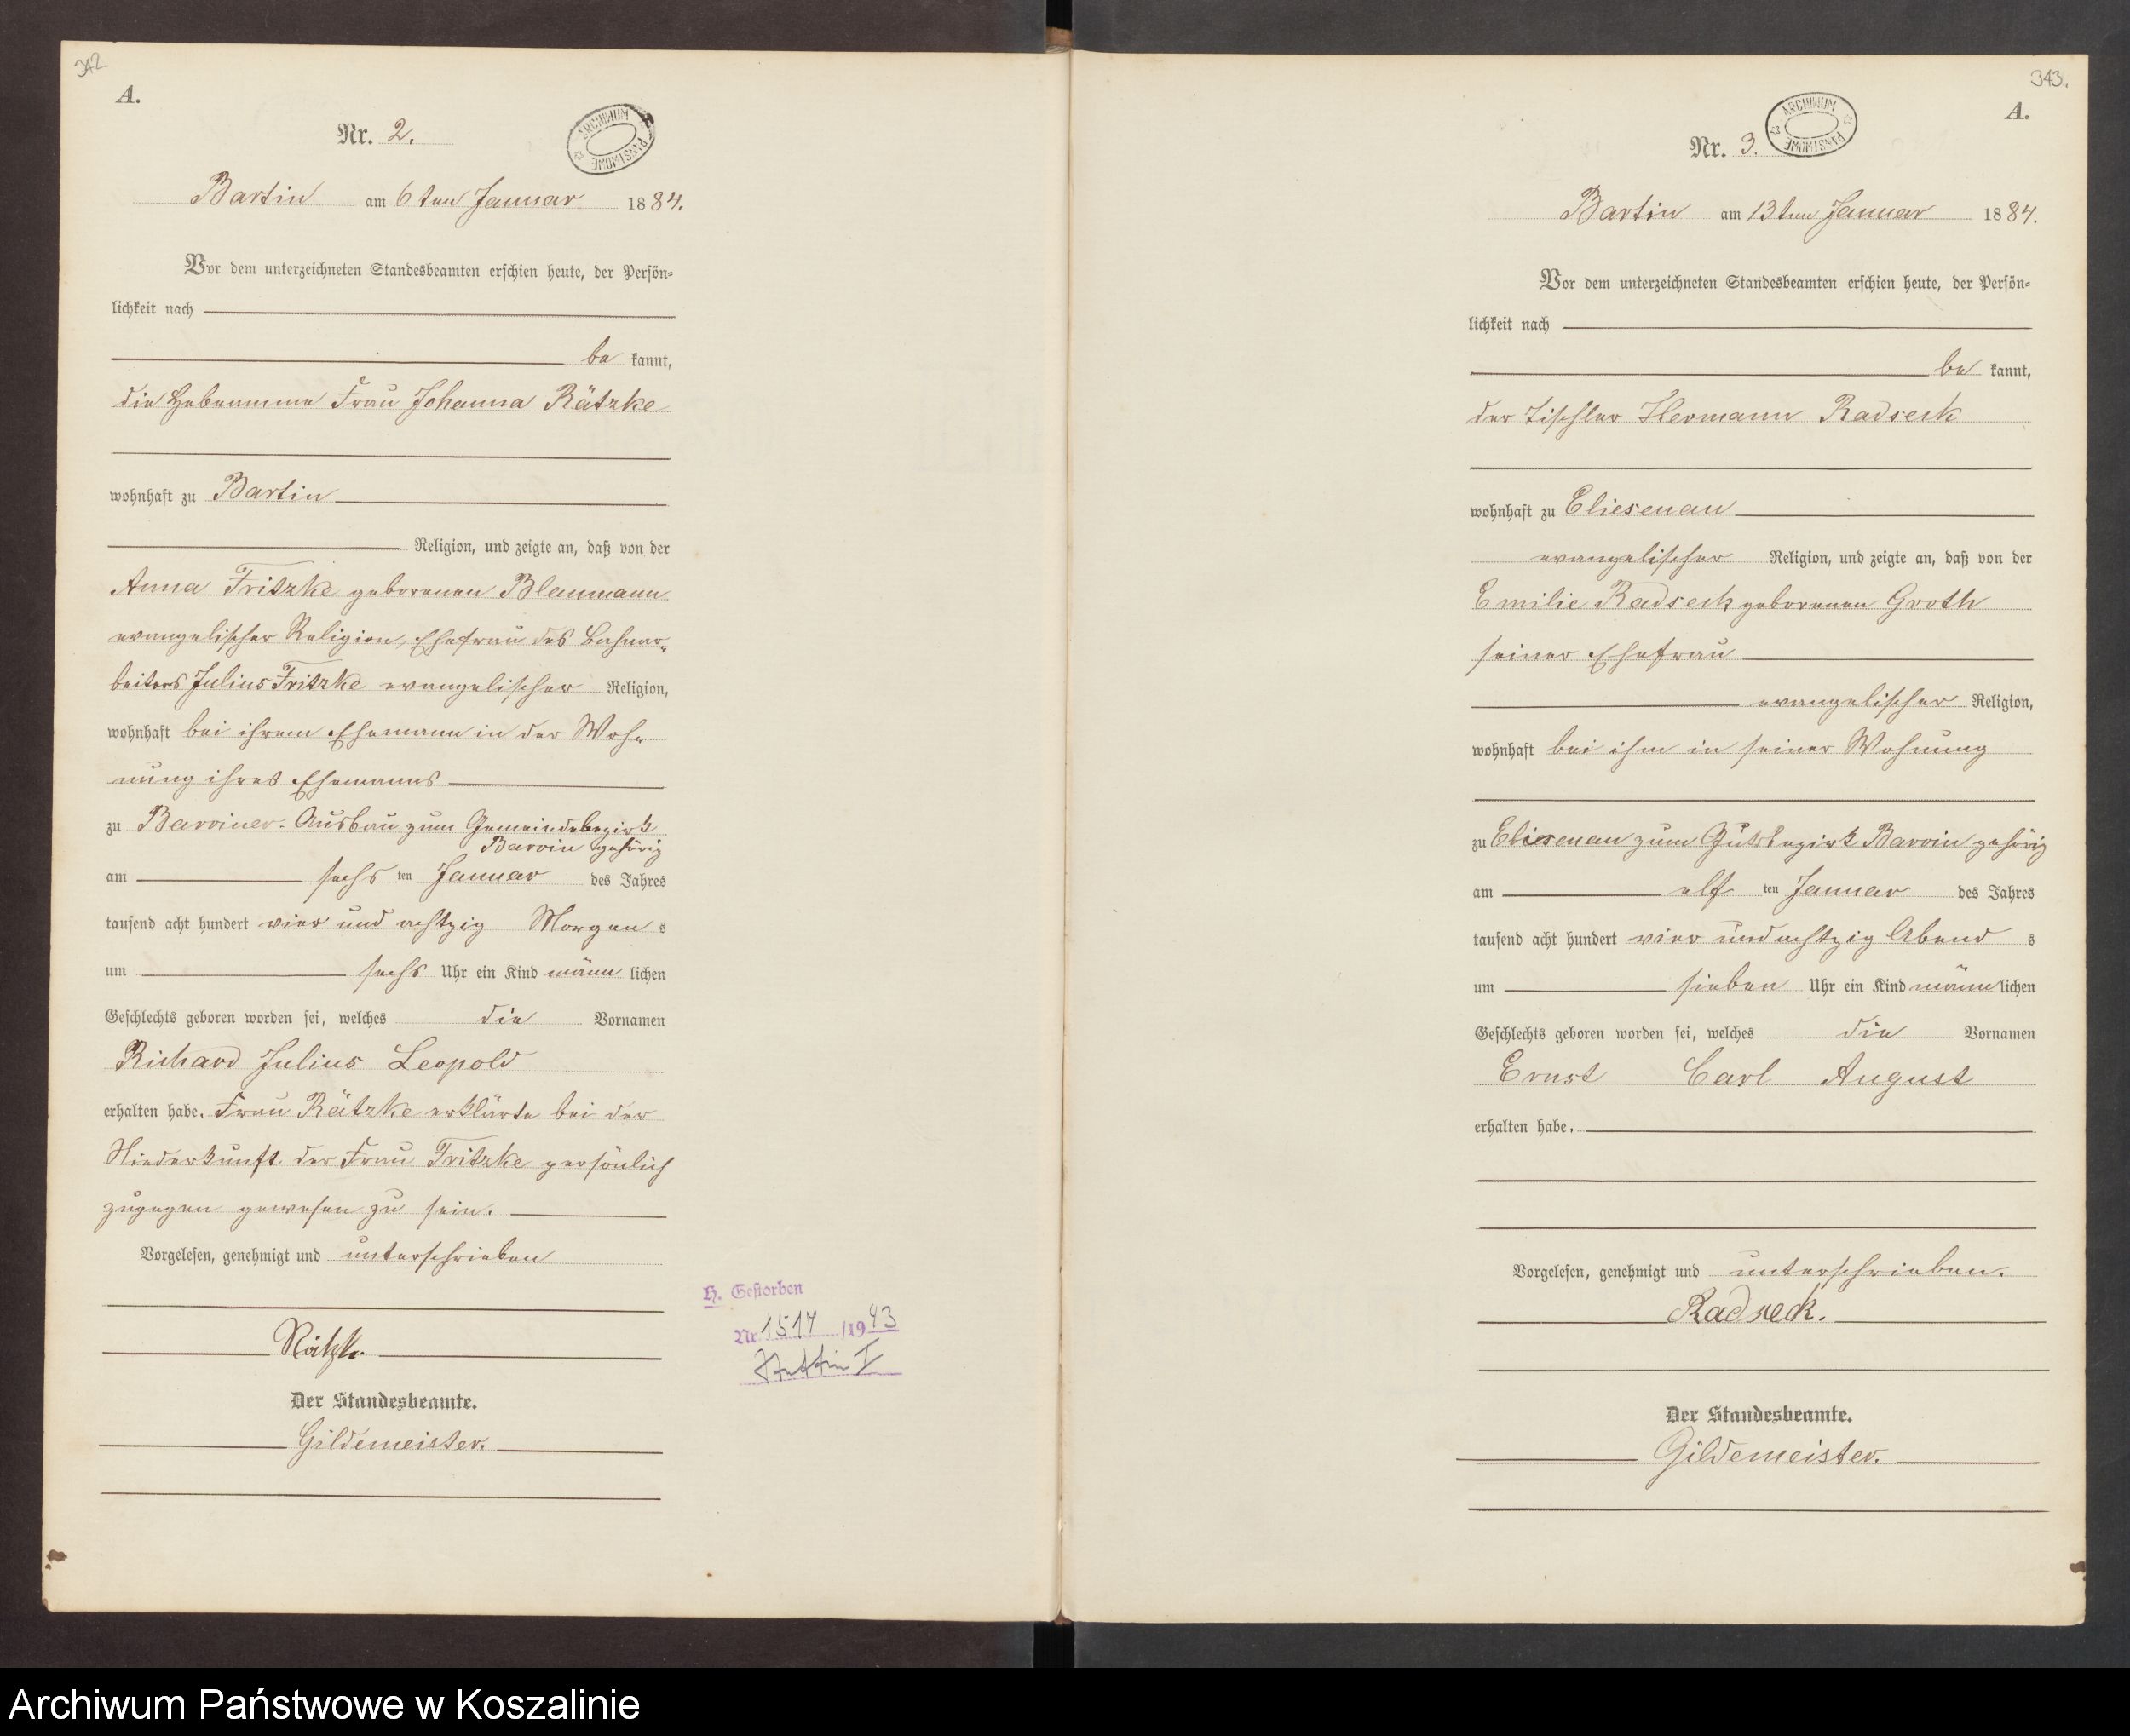 342.
A.
Nr. 2.
ARCHIWUM PAŃSTWOWE
Bartin am 6ten Januar 1884.
Vor dem unterzeichneten Standesbeamten erschien heute, der Persön-
lichkeit nach
be kannt,
die Hebeamme Frau Johanna Rätzke
wohnhaft zu Bartin
Religion, und zeigte an, daß von der
Anna Fritzke geborenen Blaumann
evangelischer Religion, Ehefrau des Bahnar-
beiters Julius Fritzke evangelischer Religion,
wohnhaft bei ihrem Ehemann in der Woh-
nung ihres Ehemanns
zu Barviner-Ausbau zum Gemeindebezirk
Barvin gehörig
am sechs ten Januar des Jahres
tausend acht hundert vier und achtzig Morgen s
um sechs Uhr ein Kind männ lichen
Geschlechts geboren worden sei, welches die Vornamen
Richard Julius Leopold
erhalten habe. Frau Rätzke erklärte bei der
Niederkunft der Frau Fritzke persönlich
zugegen gewesen zu sein.
Vorgelesen, genehmigt und unterschrieben
Rätzke.
Der Standesbeamte.
Gildemeister.
H. Gestorben
Nr. 1517 /1943
Stettin I
343.
A.
Nr. 3.
ARCHIWUM PAŃSTWOWE
Bartin am 13ten Januar 1884.
Vor dem unterzeichneten Standesbeamten erschien heute, der Persön-
lichkeit nach
be kannt,
der Tischler Hermann Radseck
wohnhaft zu Eliesenau
evangelischer Religion, und zeigte an, daß von der
Emilie Radseck geborenen Groth
seiner Ehefrau
evangelischer Religion,
wohnhaft bei ihm in seiner Wohnung
zu Eliesenau zum Gutsbezirk Barvin gehörig
am elf ten Januar des Jahres
tausend acht hundert vier und achtzig Abend s
um sieben Uhr ein Kind männ lichen
Geschlechts geboren worden sei, welches die Vornamen
Ernst Carl August
erhalten habe.
Vorgelesen, genehmigt und unterschrieben.
Radseck.
Der Standesbeamte.
Gildemeister.
Archiwum Państwowe w Koszalinie